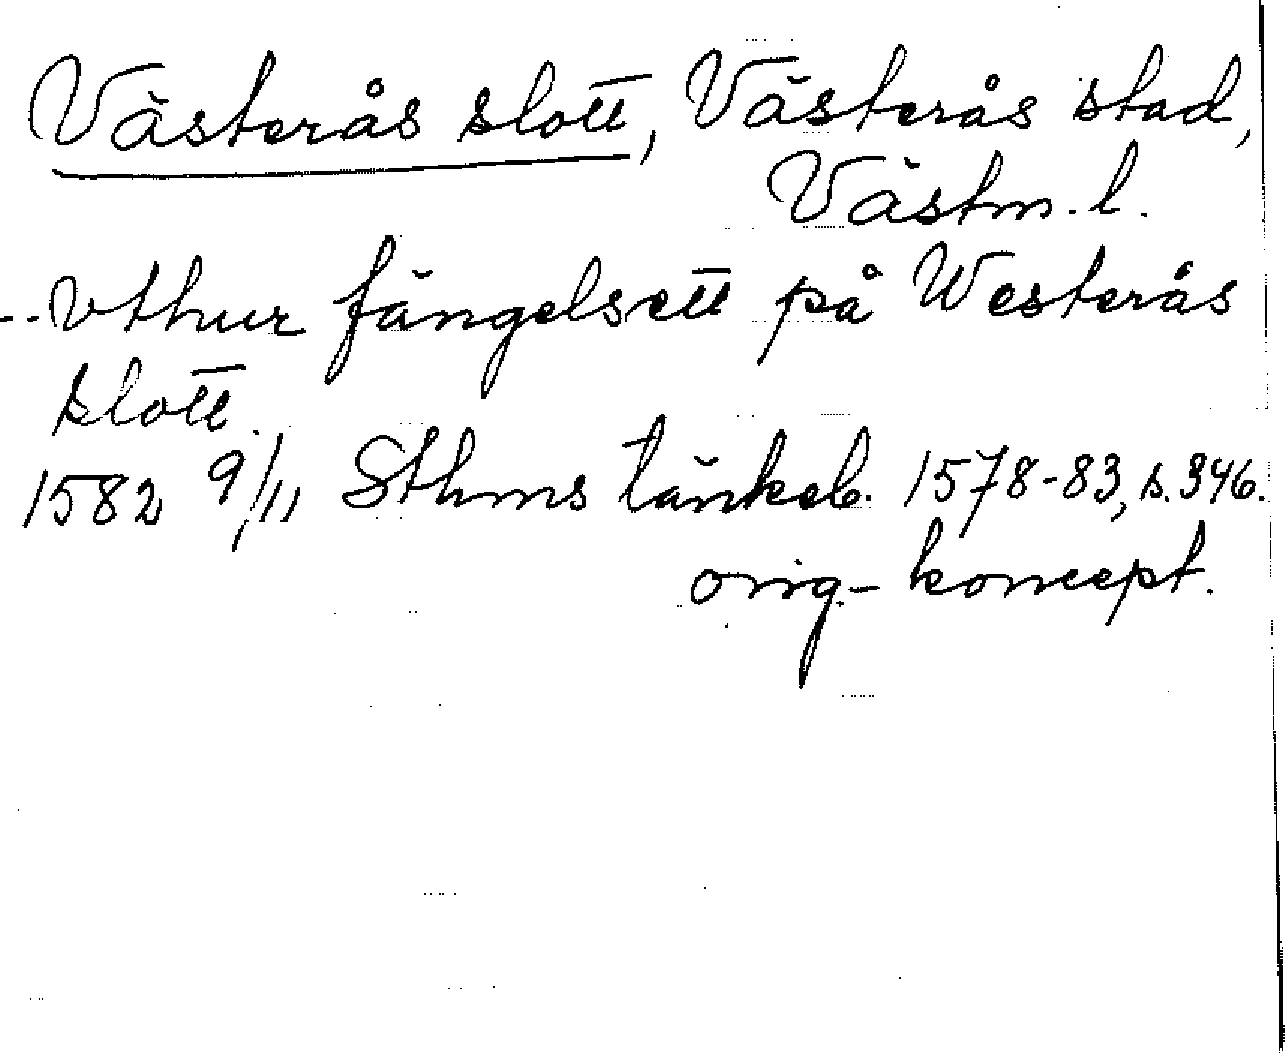 Västerås slott, Västerås stad,
Västm. l.
--vthur fängelsett på Westerås
slott.
1582 9/11 Sthms tänkeb. 1578-83, s. 346.
orig.-koncept.